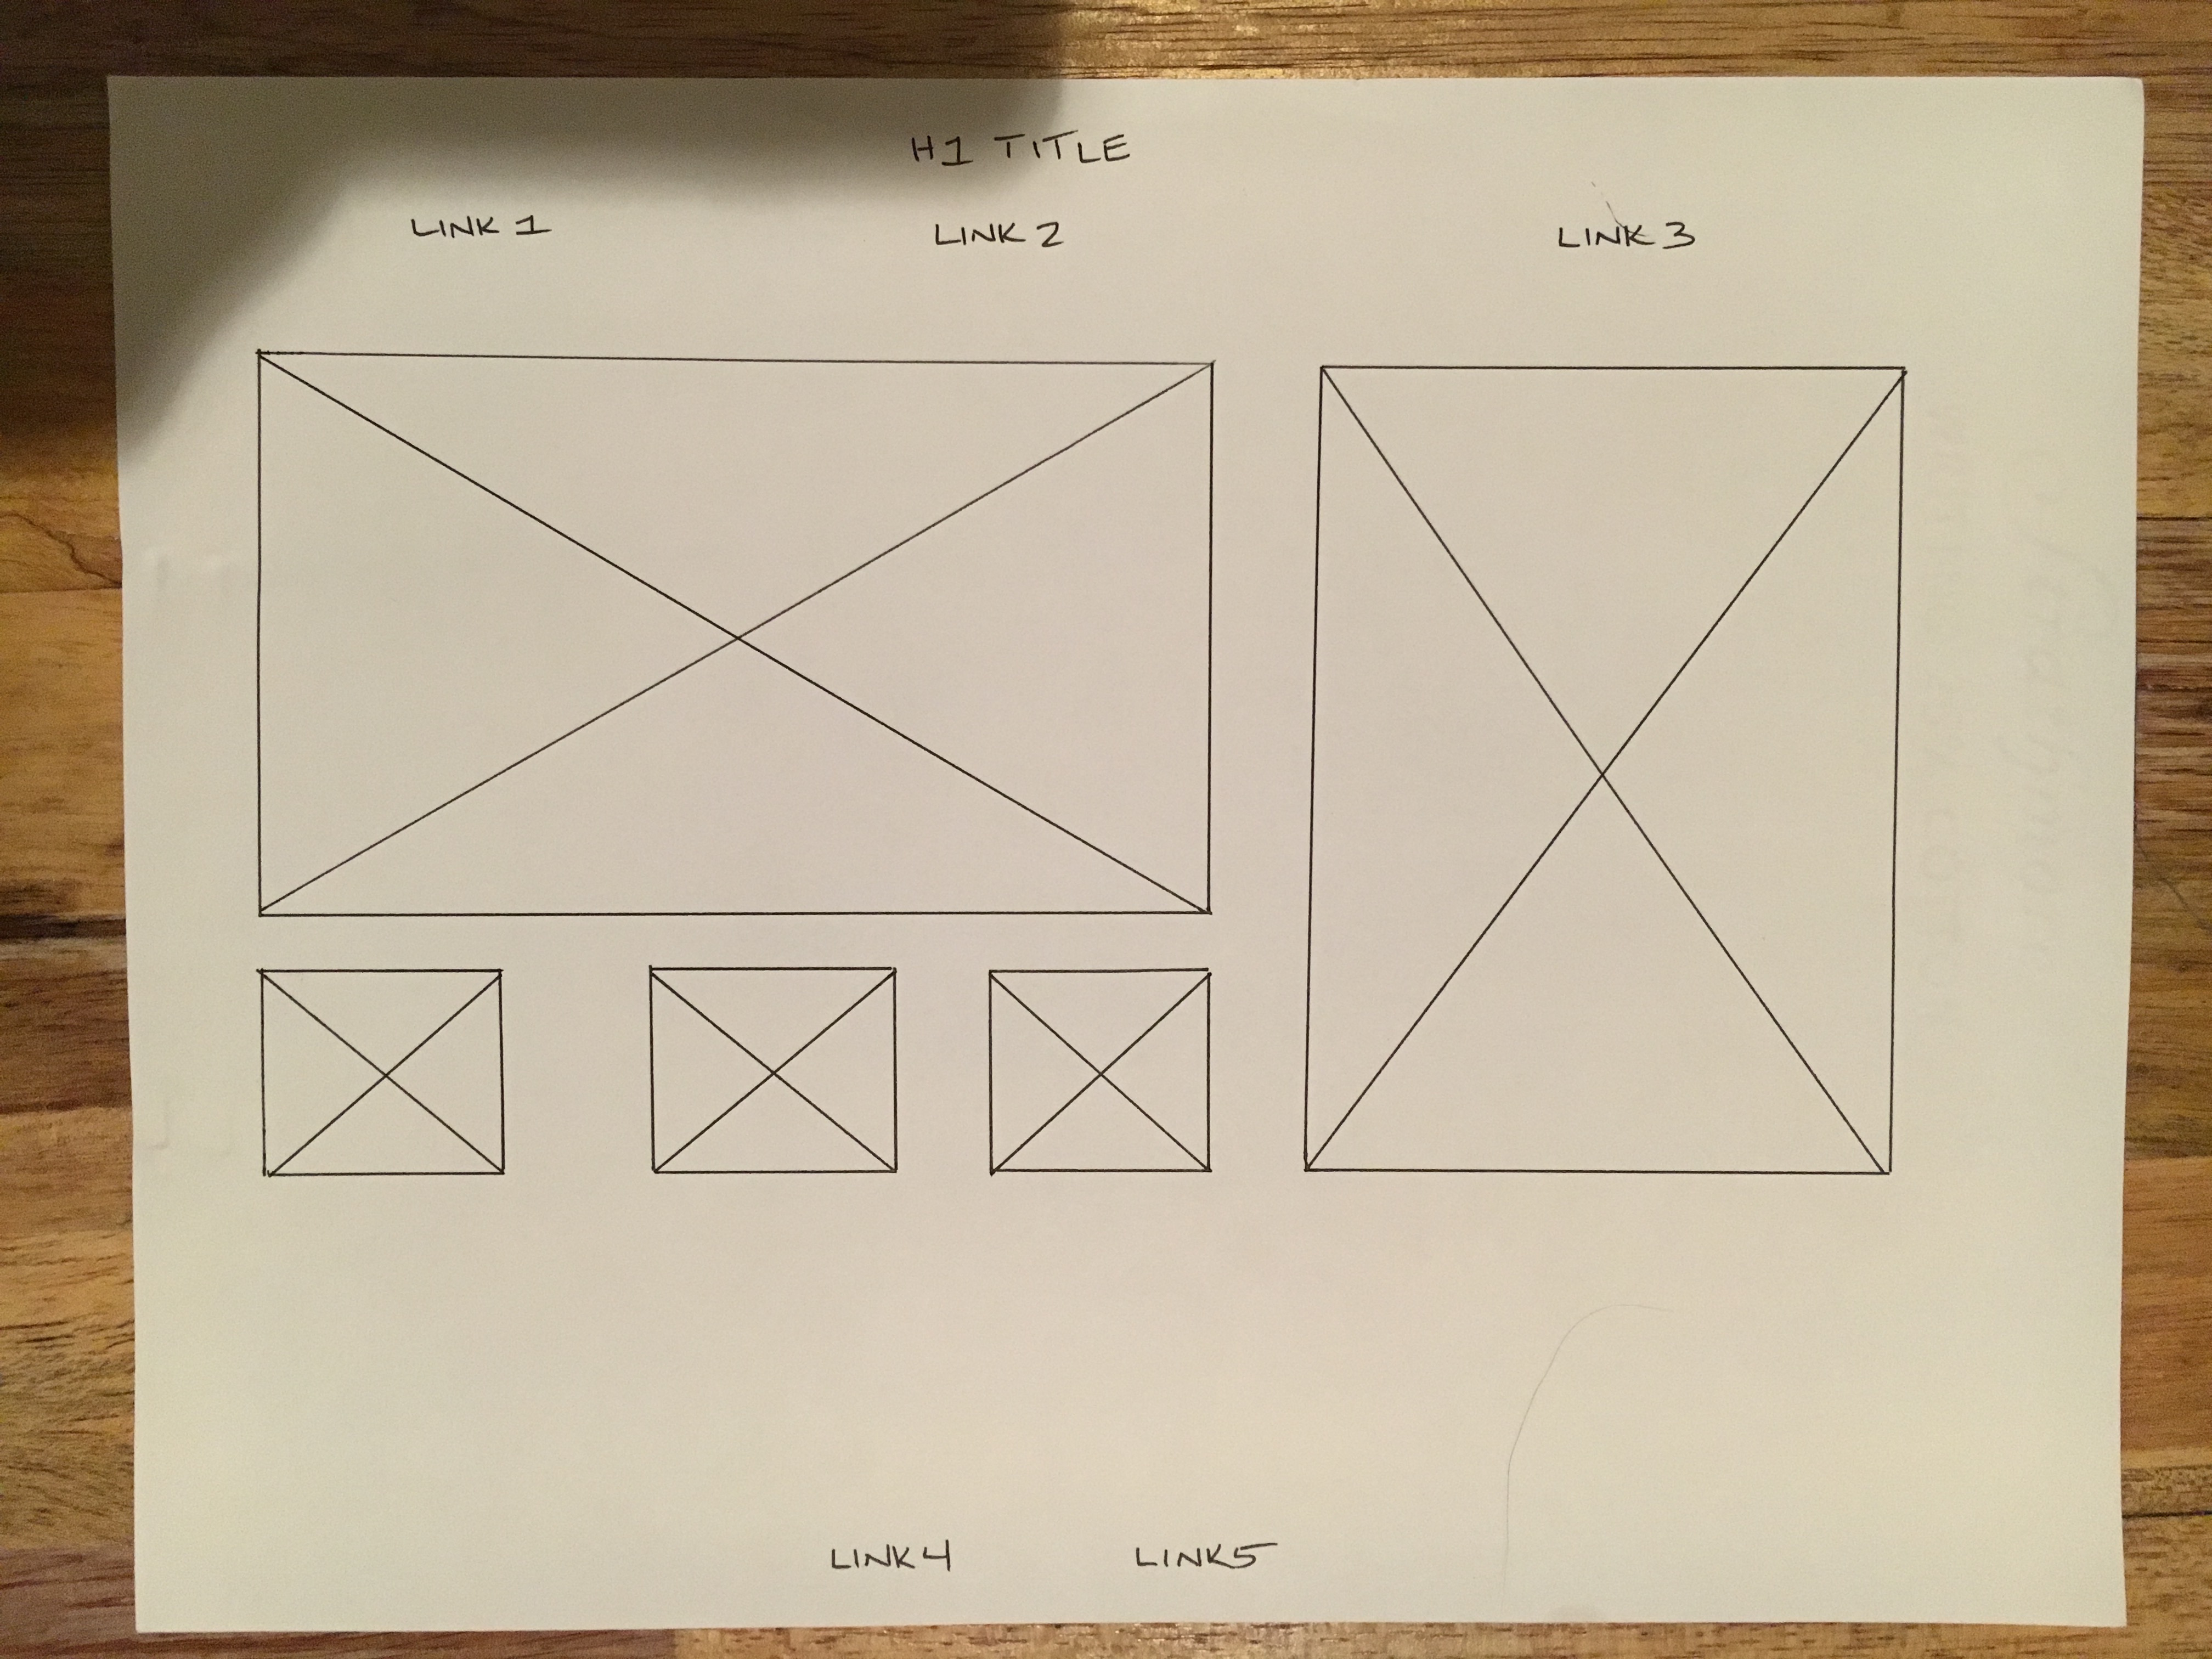 H1 TITLE
LINK 1 LINK 2 LINK 3
LINK 4 LINK 5